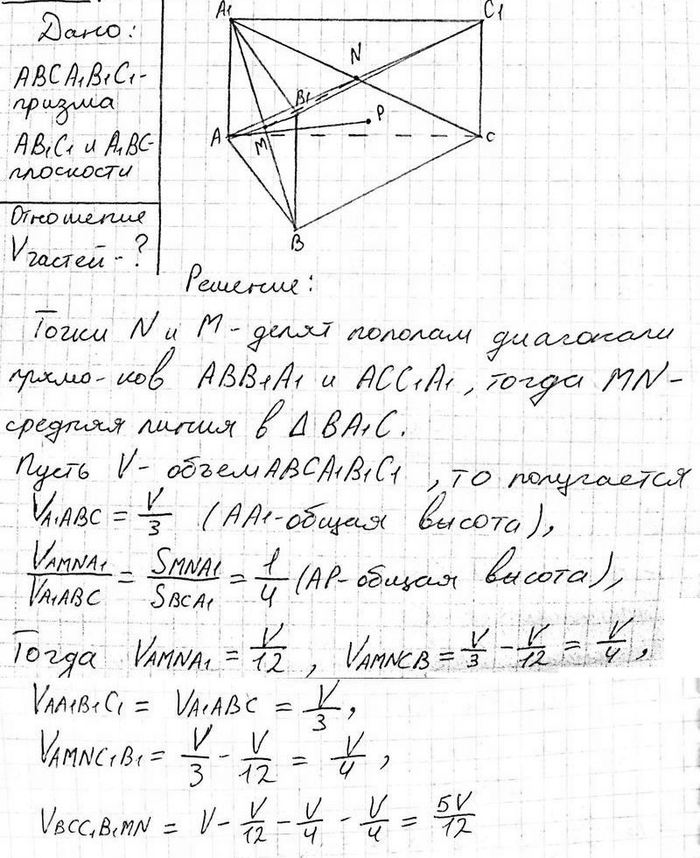 Дано:
ABCA₁B₁C₁-
призма
AB₁C₁ и A₁BC-
плоскости
Отношение
Vчастей-?
A₁
C₁
N
B₁
P
A
M
C
B
Решение:
Точки N и M - делят пополам диагонали
прямо-ков ABB₁A₁ и ACC₁A₁, тогда MN-
средняя линия в Δ BA₁C.
Пусть V - объем ABCA₁B₁C₁, то получается
VA₁ABC = V/3 (AA₁-общая высота),
VAMNA₁/VA₁ABC = SMNA₁/SBCA₁ = 1/4 (AP-общая высота),
Тогда VAMNA₁ = V/12, VAMNCB = V/3 - V/12 = V/4,
VAA₁B₁C₁ = VA₁ABC = V/3,
VAMNC₁B₁ = V/3 - V/12 = V/4,
VBCC₁B₁MN = V - V/12 - V/4 - V/4 = 5V/12